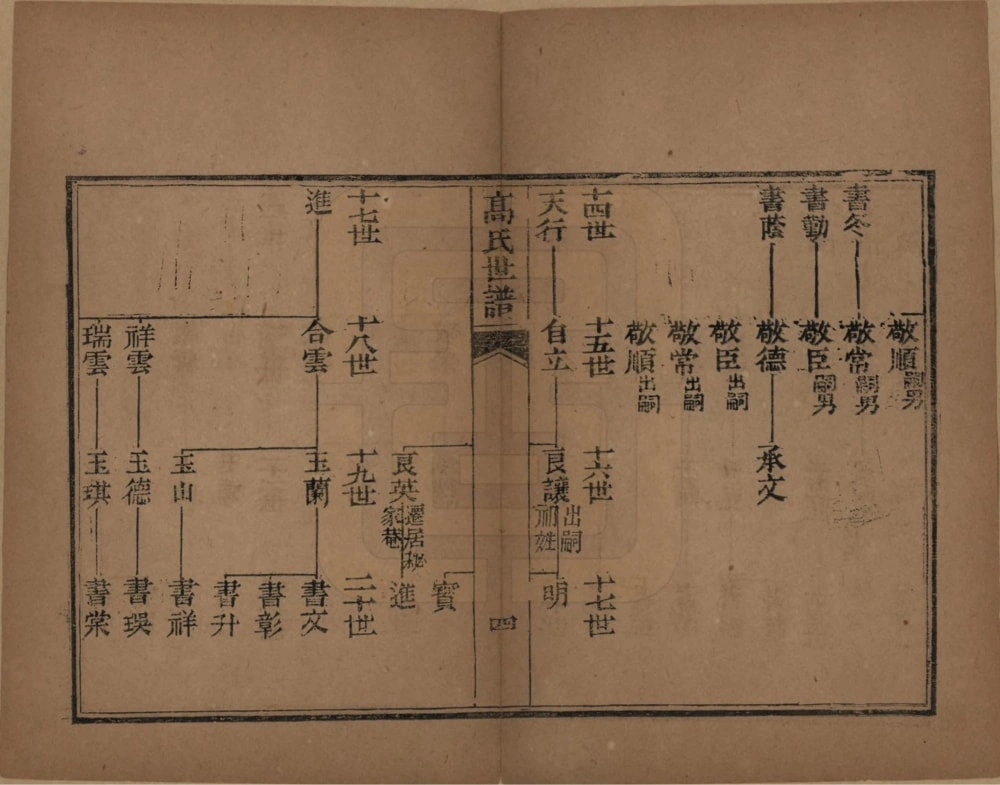 書冬
書勤
書蔭
敬順嗣男
敬常嗣男
敬臣嗣男
敬德
敬臣出嗣
敬常出嗣
敬順出嗣
承文
十四世
天行
十五世
自立
十六世
良讓出嗣
祁姓
十七世
明
高氏世譜
四
寳
良英遷居
家巷
進
十七世
進
十八世
合雲
祥雲
瑞雲
十九世
玉蘭
玉山
玉德
玉琪
二十世
書文
書彰
書升
書祥
書琪
書棠